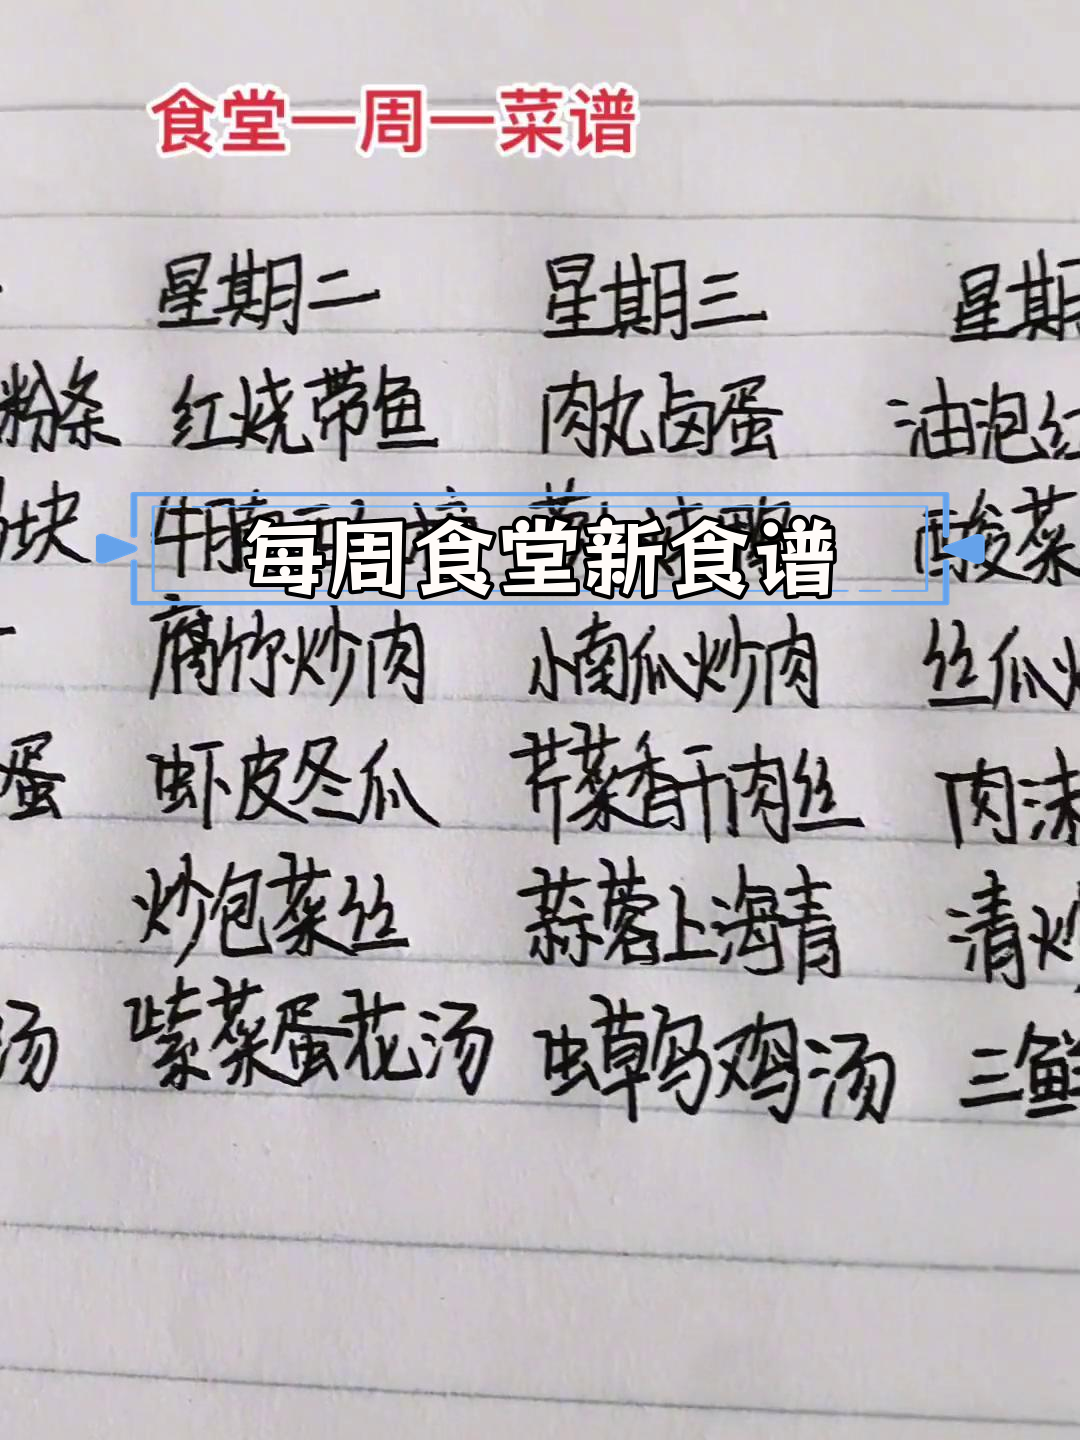 食堂一周一菜谱
星期二 星期三 星期
粉条 红烧带鱼 肉丸卤蛋 油泡红
块 牛腩 烧鸭 酸菜
每周食堂新食谱
腐竹炒肉 小南瓜炒肉 丝瓜炒
蛋 虾皮冬瓜 芹菜香干肉丝 肉沫
炒包菜丝 蒜蓉上海青 清炒
汤 紫菜蛋花汤 虫草乌鸡汤 三鲜